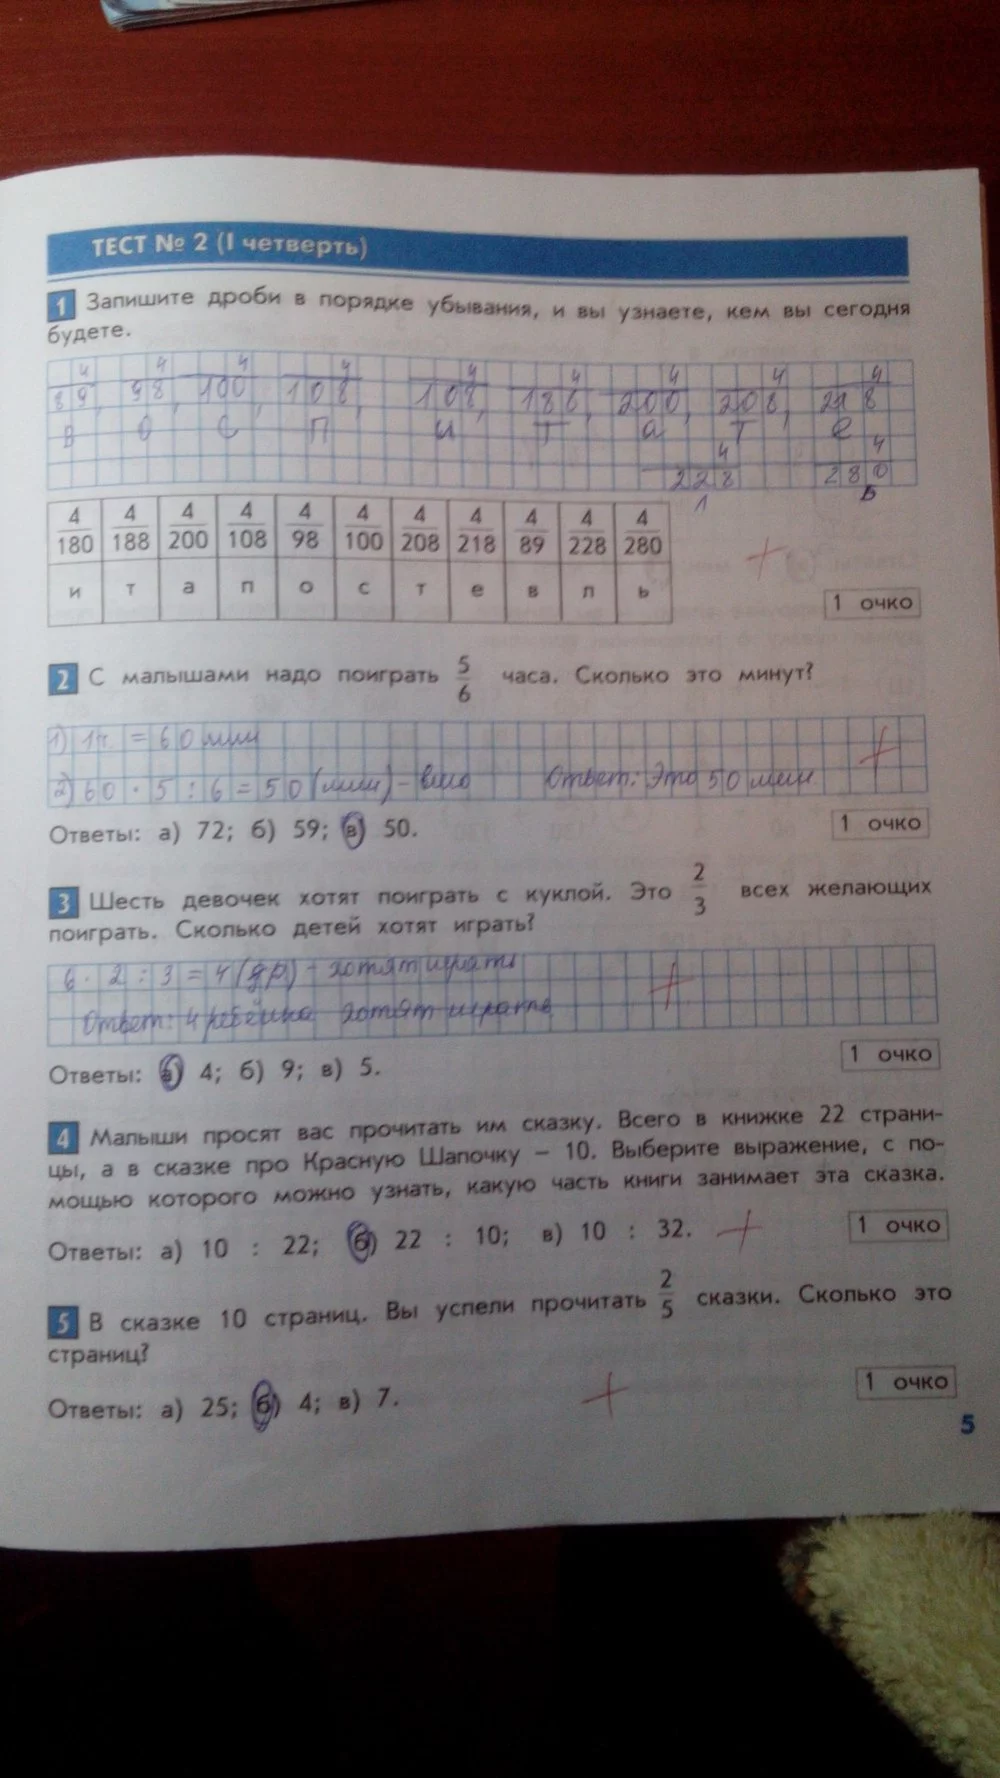 ТЕСТ № 2 (I четверть)
1 Запишите дроби в порядке убывания, и вы узнаете, кем вы сегодня
будете.
4 4 4 4 4 4 4 4 4
89, 98, 100, 108, 108, 188, 200, 208, 218
в о с п и т а т е
4 4
228 280
л ь
4 4 4 4 4 4 4 4 4 4 4
180 188 200 108 98 100 208 218 89 228 280
и т а п о с т е в л ь
+
1 очко
2 С малышами надо поиграть 5/6 часа. Сколько это минут?
1) 1ч = 60 мин
2) 60 · 5 : 6 = 50 (мин) – Ответ: Это 50 мин
+
Ответы: а) 72; б) 59; в) 50.
1 очко
3 Шесть девочек хотят поиграть с куклой. Это 2/3 всех желающих
поиграть. Сколько детей хотят играть?
6 · 2 : 3 = 4 (др) – хотят играть
Ответ: 4 ребёнка хотят играть
+
Ответы: а) 4; б) 9; в) 5.
1 очко
4 Малыши просят вас прочитать им сказку. Всего в книжке 22 страни-
цы, а в сказке про Красную Шапочку – 10. Выберите выражение, с по-
мощью которого можно узнать, какую часть книги занимает эта сказка.
Ответы: а) 10 : 22; б) 22 : 10; в) 10 : 32. +
1 очко
5 В сказке 10 страниц. Вы успели прочитать 2/5 сказки. Сколько это
страниц?
Ответы: а) 25; б) 4; в) 7. +
1 очко
5